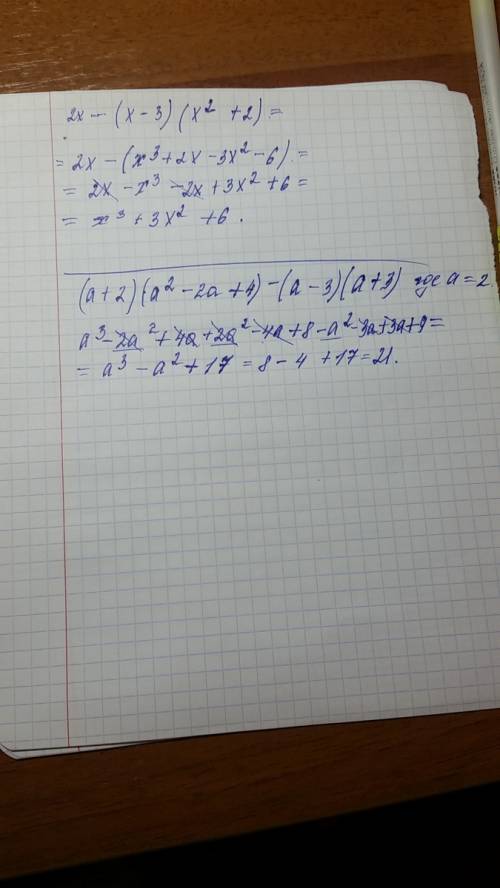 2x - (x - 3)(x² + 2) =
= 2x - (x³ + 2x - 3x² - 6) =
= 2x - x³ - 2x + 3x² + 6 =
= x³ + 3x² + 6.
(a + 2)(a² - 2a + 4) - (a - 3)(a + 3) где a = 2
a³ - 2a² + 4a + 2a² - 4a + 8 - a² - 3a + 3a + 9 =
= a³ - a² + 17 = 8 - 4 + 17 = 21.